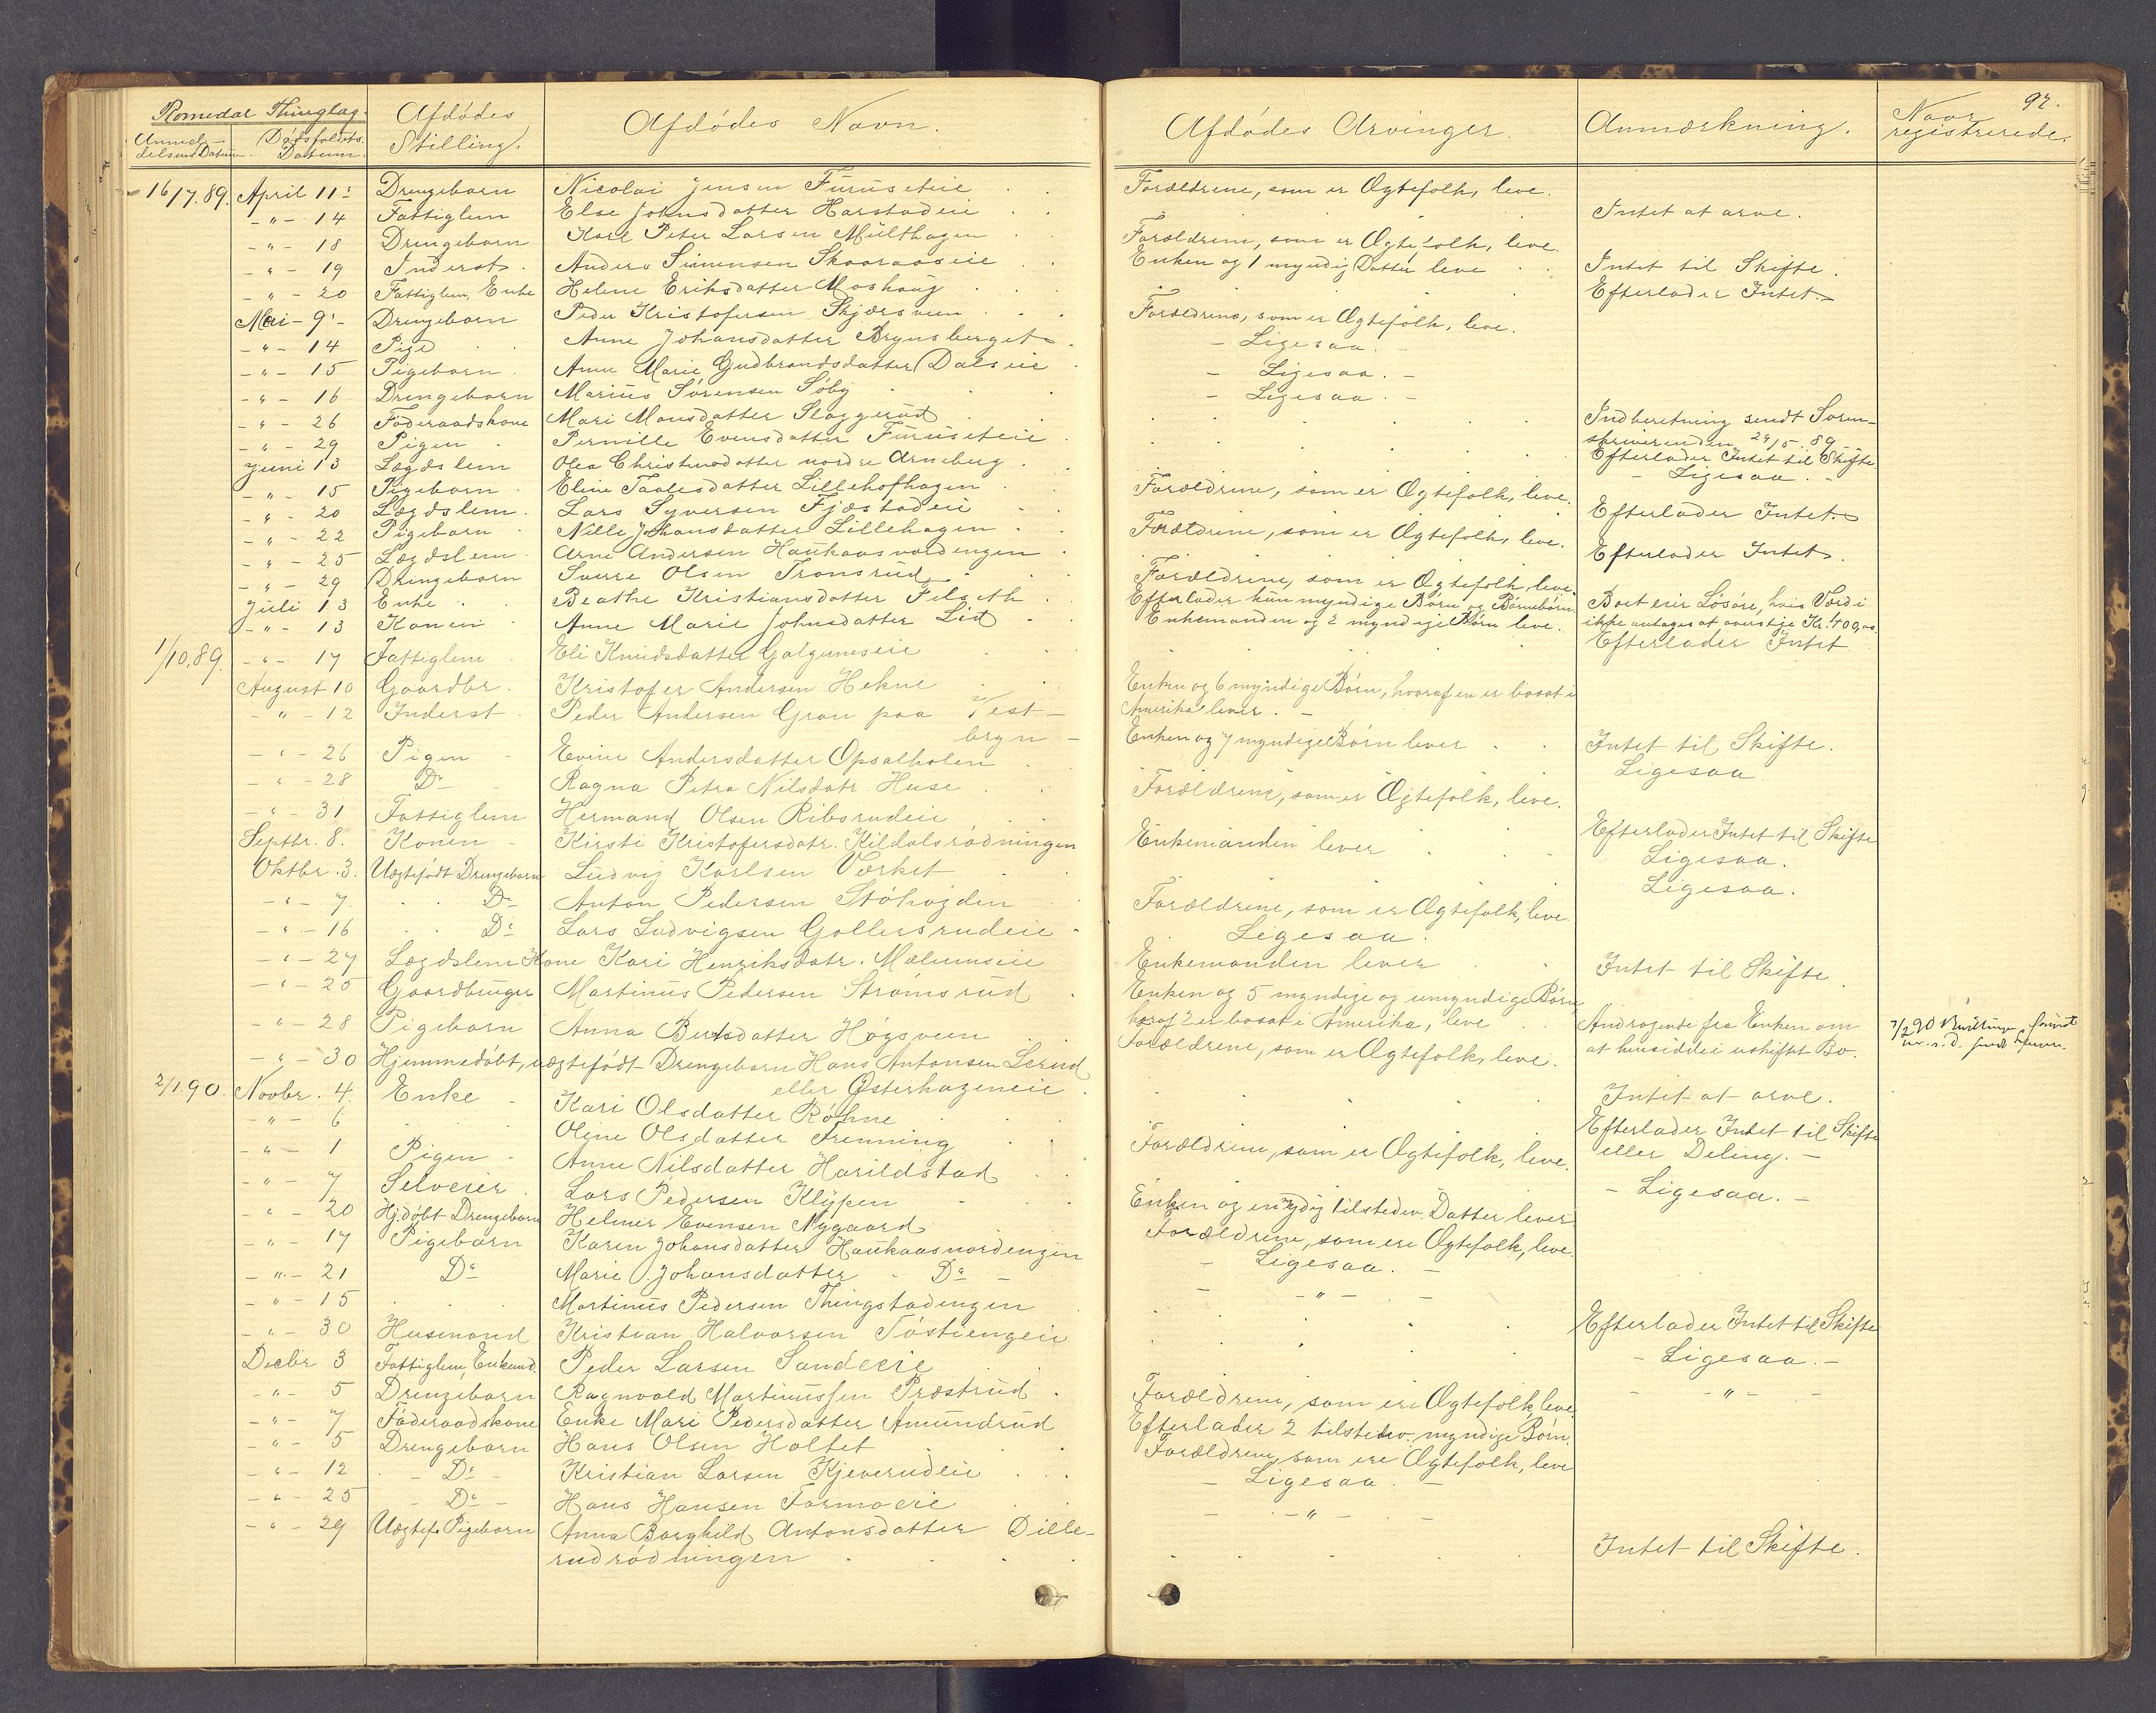 Romedal Thinglag. Afdødes Stilling. Afdødes Navn. Afdødes Arvinger. Anmærkning. Naar registrerede. 92.
Anmeldelsens Datum. Dødsfaldets Datum.
16/7.89. April 11: Drengebarn Nicolai Jensen Furuseteie Forældrene, som er Ægtefolk, leve.
-"- 14 Fattiglem Else Johnsdatter Harstadeie Intet at arve.
-"- 18 Drengebarn Karl Peter Larsen Multhagen Forældrene, som er Ægtefolk, leve.
-"- 19 Inderst. Anders Simensen Skaaraaseie Enken og 1 myndig Datter leve Intet til Skifte.
-"- 20 Fattiglem, Enke Helene Eriksdatter Moshaug Efterlader Intet.
Mai - 9 - Drengebarn Peder Kristofersen Skjærsveen Forældrene, som er Ægtefolk, leve.
-"- 14 Pige Anne Johansdatter Brynsberget - Ligesaa. -
-"- 15 Pigebarn. Anne Marie Gudbrandsdatter Dalseie - Ligesaa. -
-"- 16 Drengebarn Marius Sørensen Søby - Ligesaa. -
-"- 26 Føderaadskone Mari Monsdatter Slaggerud Indberetning sendt Sorenskriveren den 29/5.89.
-"- 29 Pigen Pernille Evensdatter Furuseteie Efterlader Intet til Skifte.
Juni 13 Lægdslem Olea Christensdatter nordre Arneberg - Ligesaa. -
-"- 15 Pigebarn. Eline Taalesdatter Lillehofhagen Forældrene, som er Ægtefolk, leve.
-"- 20 Lægdslem. Lars Syversen Fjæstadeie Efterlader Intet.
-"- 22 Pigebarn Nille Johansdatter Lillehagen Forældrene, som er Ægtefolk, leve.
-"- 25 Lægdslem. Arne Andersen Haukaasnordengen Efterlader Intet.
-"- 29 Drengebarn Sverre Olsen Tronsrud Forældrene, som er Ægtefolk, leve.
Juli 13 Enke Beathe Kristiansdatter Felseth Efterlader kun myndige Børn og Børnebørn. Boet eier Løsøre, hvis Værdi
-"- 13 Konen Anne Marie Johnsdatter Lid Enkemanden og 2 myndige Børn leve. ikke antages at overstige Kr. 400,00.
1/10.89. -"- 17 Fattiglem Eli Knudsdatter Galgumseie Efterlader Intet.
August 10 Gaardbr. Kristofer Andersen Hekne Enken og 6 myndige Børn, hvoraf en er bosat i
Amerika lever. -
-"- 12 Inderst. Peder Andersen Gran paa Vestbryn - Enken og 7 myndige Børn lever Intet til Skifte.
-"- 26 Pigen Evine Andersdatter Opsalholen Ligesaa
-"- 28 Do Ragna Petra Nilsdatr. Huse Forældrene, som er Ægtefolk, leve.
-"- 31 Fattiglem Hermand Olsen Ribsrudeie Efterlader Intet til Skifte
Septbr. 8. Konen Kirsti Kristofersdatr. Kildalsrødningen Enkemanden lever Ligesaa.
Oktbr. 3. Uægtefødt Drengebarn Ludvig Karlsen Værket Ligesaa.
-"- 7. Do Anton Pedersen Stóhøgden Forældrene, som er Ægtefolk, leve.
-"- 16 Do Lars Ludvigsen Gollersrudeie Ligesaa.
-"- 27 Lægdslem Kone Kari Henriksdatr. Mælumseie Enkemanden lever Intet til Skifte.
-"- 25 Gaardbruger Martinus Pedersen Strømsrud Enken og 5 myndige og umyndige Børn,
hvoraf 2 er bosat i Amerika, leve Andragende fra Enken om
-"- 28 Pigebarn Anna Berntsdatter Høgsveen Forældrene, som er Ægtefolk, leve. at hensidde i uskiftet Bo.
-"- 30 Hjemmedøbt, uægtefødt Drengebarn Hans Antonsen Lerud
eller Østerhageneie Intet at arve.
2/1.90. Novbr. 4. Enke Kari Olsdatter Røhne Efterlader Intet til Skifte
-"- 6 Oline Olsdatter Frenning eller Deling. -
-"- 1 Pigen Anne Nilsdatter Harildstad Forældrene, som er Ægtefolk, leve.
-"- 7 Selveier Lars Pedersen Klypen - Ligesaa. -
-"- 20 Hj.døbt Drengebarn Helmer Evensen Nygaard Enken og en mydig tilstedev. Datter lever
-"- 17 Pigebarn Karen Johansdatter Haukaasnordengen Forældrene, som ere Ægtefolk, leve.
-"- 21 Do Marie Johansdatter Do - - Ligesaa. -
-"- 15 Martinus Pedersen Thingstadengen - -"- -
-"- 30 Husmand Kristian Halvorsen Tøstiengeie Efterlader Intet til Skifte
Decbr. 3 Fattiglem, Enkemd. Peder Larsen Sandeeie - Ligesaa. -
-"- 5 Drengebarn Ragnvald Martinussen Præstrud Forældrene, som ere Ægtefolk, leve. - -"- -
-"- 7 Føderaadskone Enke Mari Pedersdatter Amundrud Efterlader 2 tilstedev. myndige Børn.
-"- 5 Drengebarn Hans Olsen Holtet Forældrene, som ere Ægtefolk, leve
-"- 12 - Do - Kristian Larsen Kjeverudeie - Ligesaa. -
-"- 25 - Do - Hans Hansen Formoeie - -"- -
-"- 29 Uægtef. Pigebarn Anna Borghild Antonsdatter Dille-
rudrødningen Intet til Skifte.